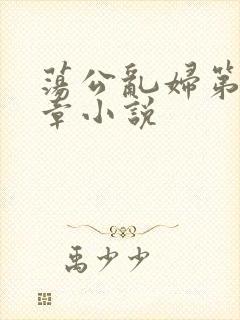 荡公亂婦第
章小說
禹少少